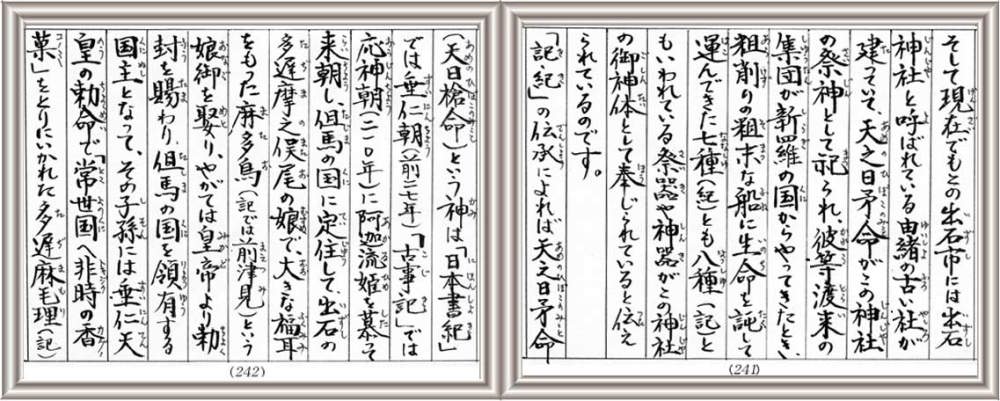 そして現在でもこの出石市には出石
神社と呼ばれている由緒の古い社が
建っていて、天之日矛命がこの神社
の祭神として祀られ、彼等渡来の
集団が新羅の国からやってきたとき、
粗削りの粗末な船に生命を託して
運んできた七種(紀)とも八種(記)と
もいわれている祭器や神器がこの神社
の御神体として奉じられていると伝え
られているのです。
「記紀」の伝承によれば天之日矛命
(241)
(天日槍命)という神は「日本書紀」
では垂仁朝(前二七年)「古事記」では
応神朝(二一〇年)に阿迦流姫を慕って
来朝し、但馬の国に定住して、出石の
多遅摩之俣尾の娘で、大きな福耳
をもった麻多烏(記では前津見)という
娘御を娶り、やがては皇帝より勅
封を賜わり、但馬の国を領有する
国主となって、その子孫には垂仁天
皇の勅命で「常世国へ非時の香
菓」をとりにいかれた多遅麻毛理(記)
(242)